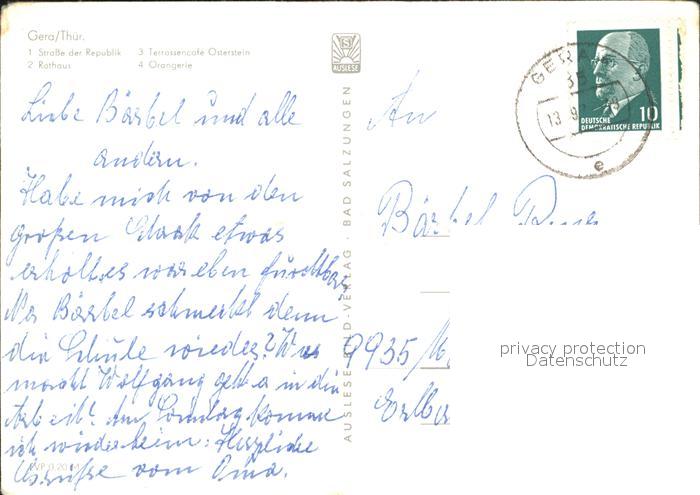 Gera/Thür.
1 Straße der Republik 3 Terrassencafe Osterstein
2 Rathaus 4 Orangerie
AUSLESE
Liebe Bärbel und alle
andern.
Habe mich von den
großen Schock etwas
erholt. es war eben furchtbar
Na Bärbel schmeckt denn
die Schule wieder? Was
macht Wolfgang geht er in die
Arbeit? Am Sonntag komme
ich wieder heim: Herzliche
Grüße vom Oma.
AUSLESE-BILD-VERLAG · BAD SALZUNGEN
An
Bärbel
9935
GERA
13.9.
e
DEUTSCHE
DEMOKRATISCHE REPUBLIK
10
privacy protection
Datenschutz